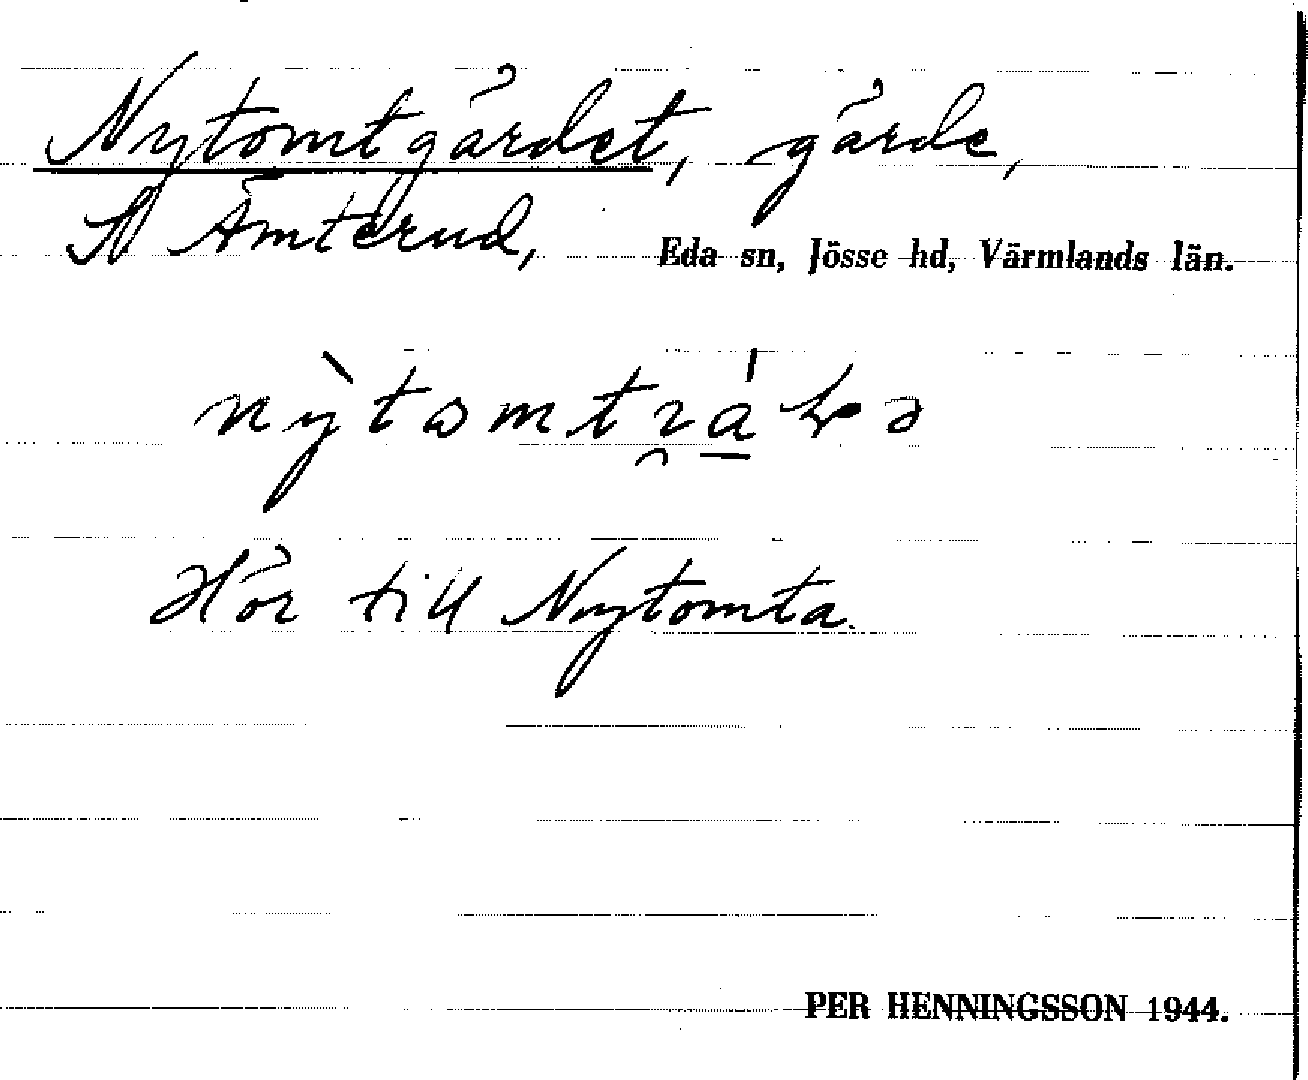 Nytomtgärdet, gärde,
N Ämterud, Eda sn, Jösse hd, Värmlands län.
Hör till Nytomta.
PER HENNINGSSON 1944.